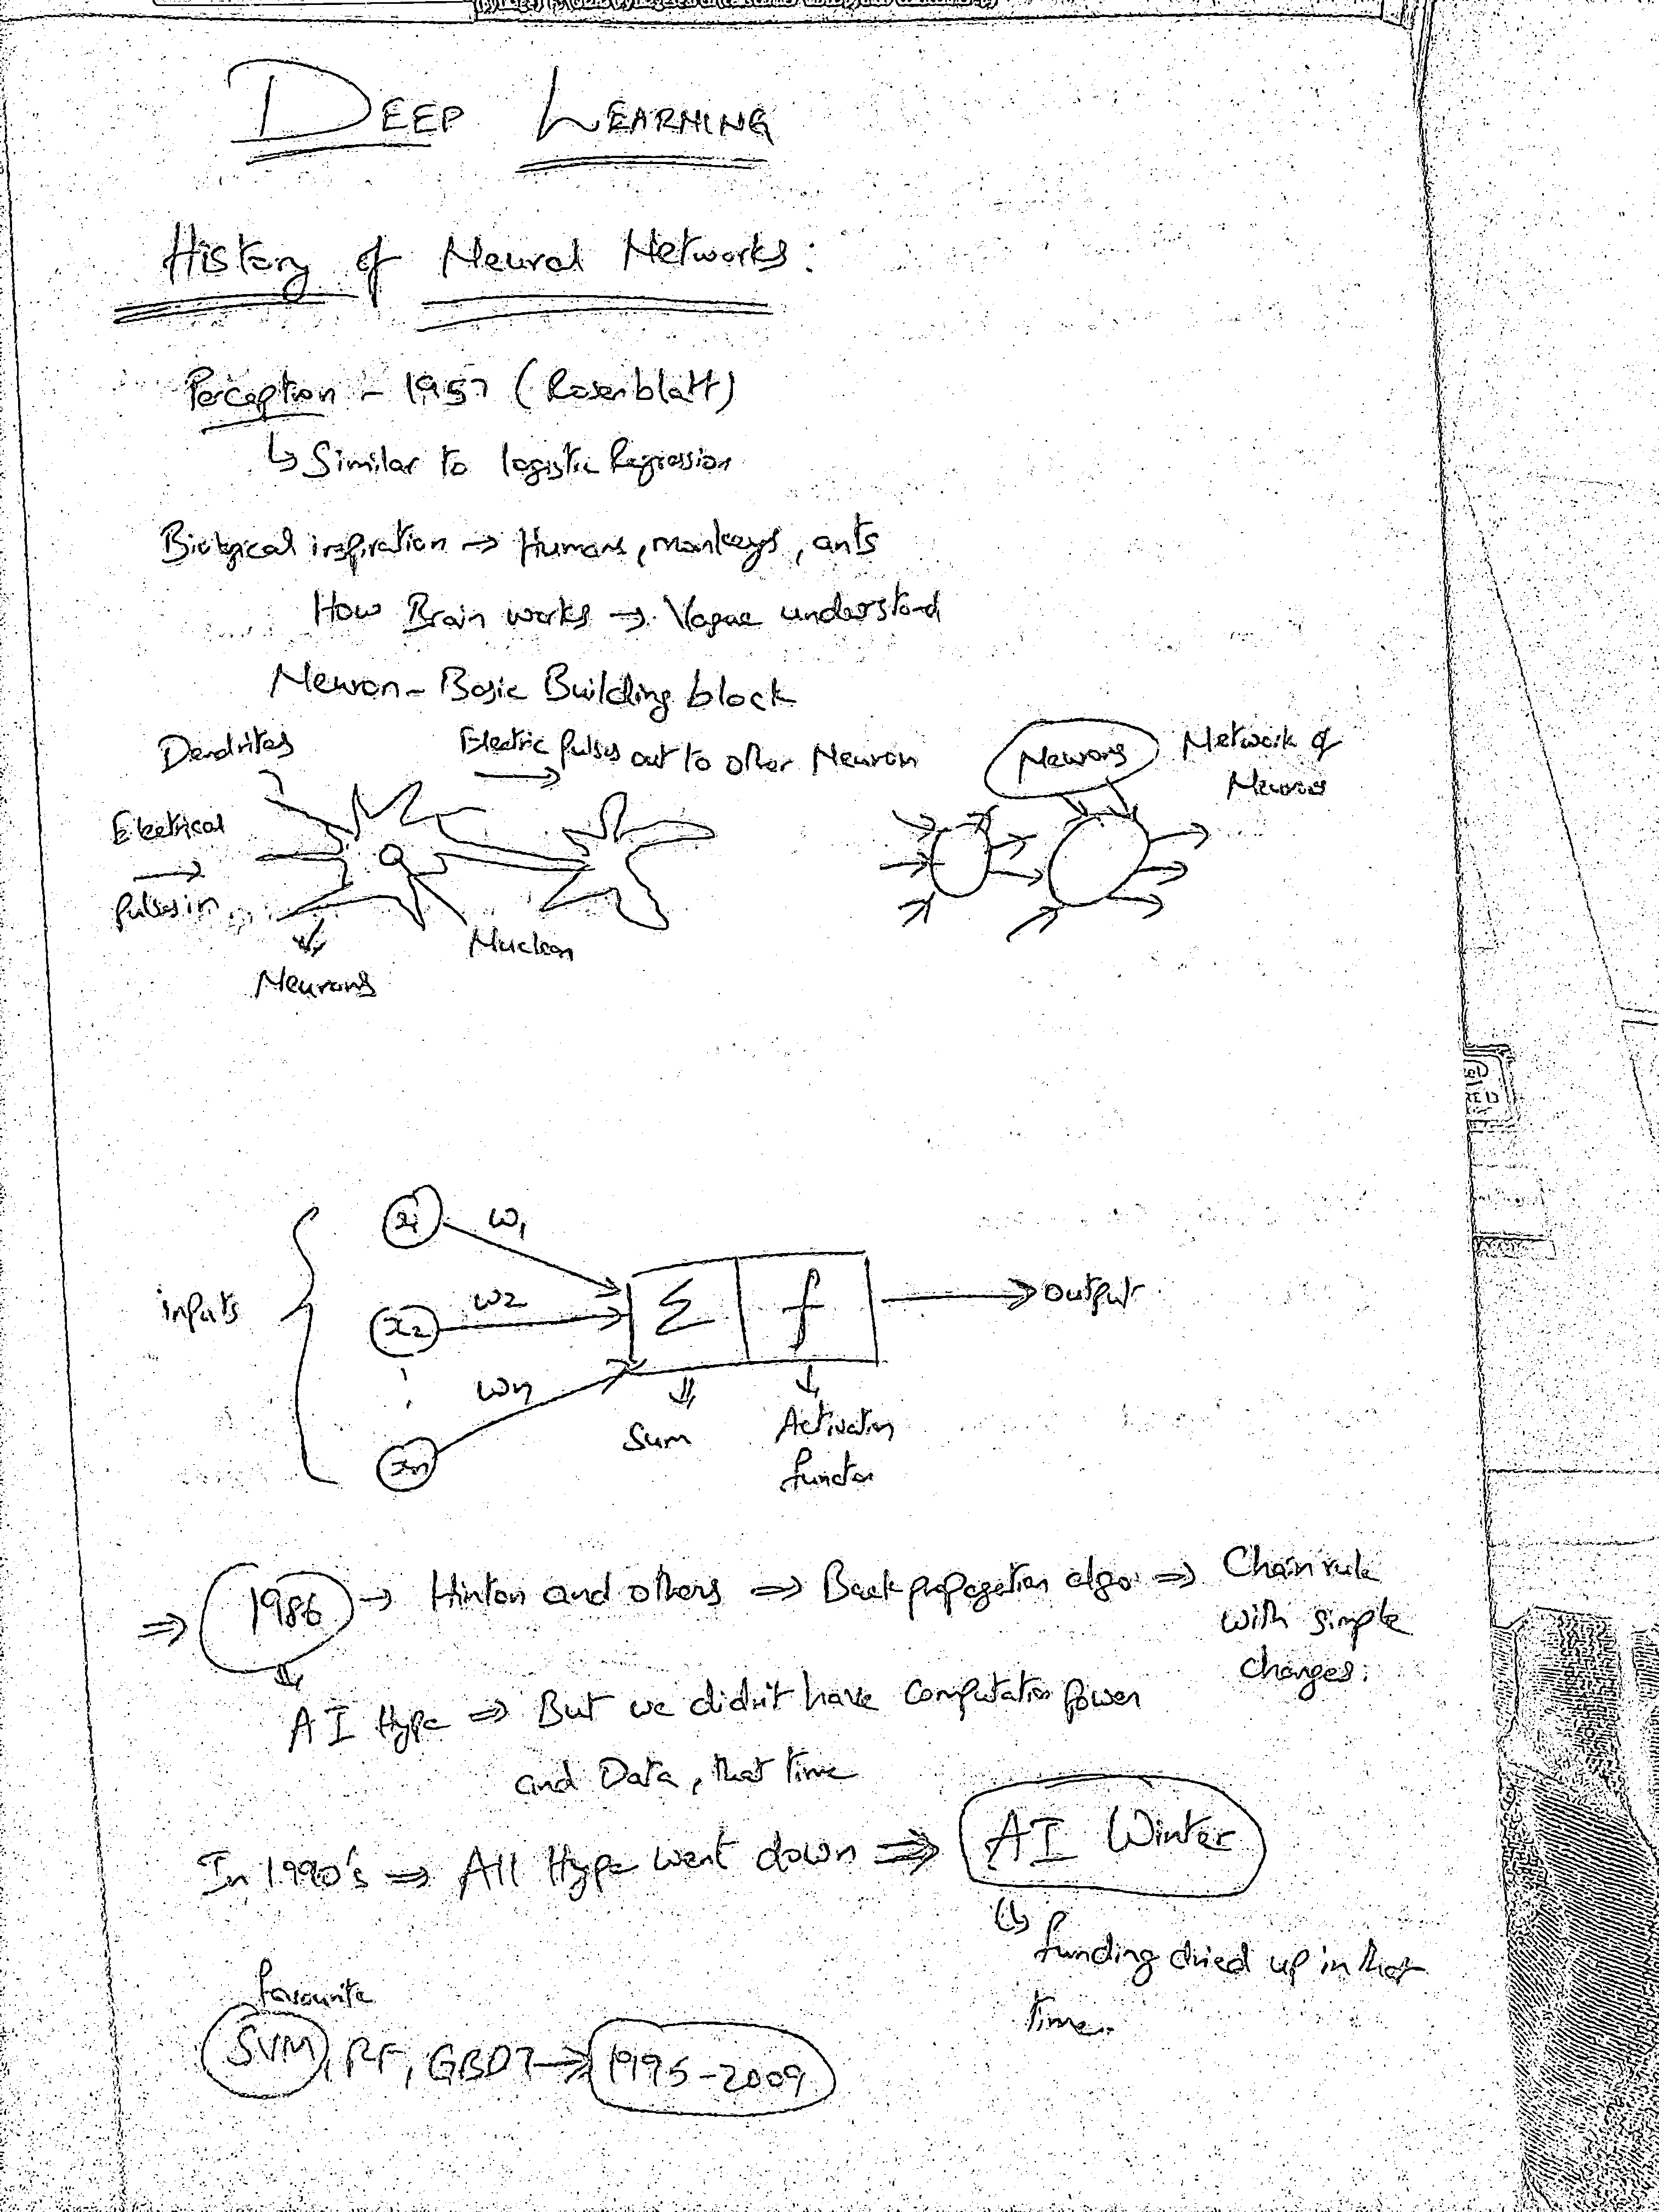 DEEP LEARNING
History of Neural Networks:
Perception - 1957 (Rosenblatt)
↳ Similar to logistic Regression
Biological inspiration → Humans, monkeys, ants
How Brain works → Vague understand
Neuron - Basic Building block
Dendrites
Electric Pulses out to other Neuron
Neurons
Network of
Neurons
Electrical
→
Pulses in
Nucleon
Neurons
x1 w1
inputs
x2 w2
Σ f → output
wn
xn
Sum
Activation
function
⇒ 1986 → Hinton and others ⇒ Back propagation algo ⇒ Chain rule
with simple
changes.
AI Hype ⇒ But we didn't have Computation power
and Data, that time
In 1990's ⇒ All Hype went down ⇒ AI Winter
↳ funding dried up in that
time.
favourite
SVM, RF, GBDT ⇒ 1995-2009